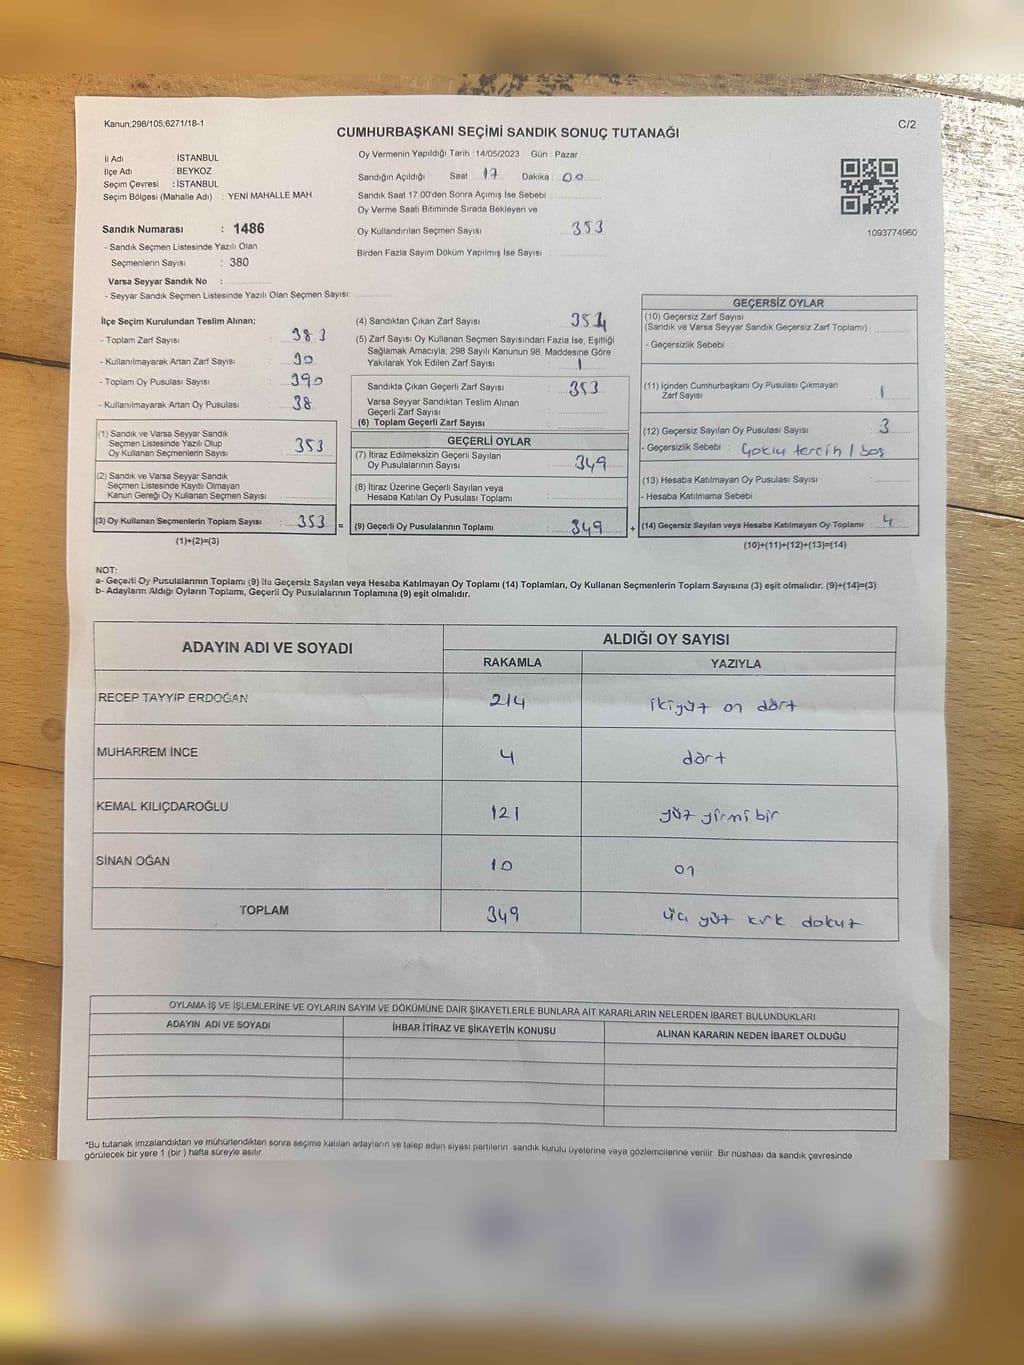 Kanun;298/105,6271/18-1
C/2
CUMHURBAŞKANI SEÇİMİ SANDIK SONUÇ TUTANAĞI
İl Adı : İSTANBUL
İlçe Adı : BEYKOZ
Seçim Çevresi : İSTANBUL
Seçim Bölgesi (Mahalle Adı) : YENİ MAHALLE MAH
Sandık Numarası : 1486
- Sandık Seçmen Listesinde Yazılı Olan
Seçmenlerin Sayısı : 380
Varsa Seyyar Sandık No :
- Seyyar Sandık Seçmen Listesinde Yazılı Olan Seçmen Sayısı:
Oy Vermenin Yapıldığı Tarih : 14/05/2023 Gün : Pazar
Sandığın Açıldığı Saat : 17 Dakika : 00
Sandık Saat 17.00'den Sonra Açımış İse Sebebi :
Oy Verme Saati Bitiminde Sırada Bekleyen ve
Oy Kullandırılan Seçmen Sayısı : 353
Birden Fazla Sayım Döküm Yapılmış İse Sayısı :
1093774960
İlçe Seçim Kurulundan Teslim Alınan;
- Toplam Zarf Sayısı : 383
- Kullanılmayarak Artan Zarf Sayısı : 30
- Toplam Oy Pusulası Sayısı : 390
- Kullanılmayarak Artan Oy Pusulası : 38
(1) Sandık ve Varsa Seyyar Sandık
Seçmen Listesinde Yazılı Olup
Oy Kullanan Seçmenlerin Sayısı : 353
(2) Sandık ve Varsa Seyyar Sandık
Seçmen Listesinde Kayıtlı Olmayan
Kanun Gereği Oy Kullanan Seçmen Sayısı :
(3) Oy Kullanan Seçmenlerin Toplam Sayısı : 353 =
(1)+(2)=(3)
(4) Sandıktan Çıkan Zarf Sayısı : 354
(5) Zarf Sayısı Oy Kullanan Seçmen Sayısından Fazla İse, Eşitliği
Sağlamak Amacıyla, 298 Sayılı Kanunun 98. Maddesine Göre
Yakılarak Yok Edilen Zarf Sayısı : 1
Sandıkta Çıkan Geçerli Zarf Sayısı : 353
Varsa Seyyar Sandıktan Teslim Alınan
Geçerli Zarf Sayısı :
(6) Toplam Geçerli Zarf Sayısı :
GEÇERLİ OYLAR
(7) İtiraz Edilmeksizin Geçerli Sayılan
Oy Pusulalarının Sayısı : 349
(8) İtiraz Üzerine Geçerli Sayılan veya
Hesaba Katılan Oy Pusulası Toplamı :
(9) Geçerli Oy Pusulalarının Toplamı : 349 +
GEÇERSİZ OYLAR
(10) Geçersiz Zarf Sayısı
(Sandık ve Varsa Seyyar Sandık Geçersiz Zarf Toplamı) :
- Geçersizlik Sebebi :
(11) İçinden Cumhurbaşkanı Oy Pusulası Çıkmayan
Zarf Sayısı : 1
(12) Geçersiz Sayılan Oy Pusulası Sayısı : 3
- Geçersizlik Sebebi : Çoklu tercih / boş
(13) Hesaba Katılmayan Oy Pusulası Sayısı :
- Hesaba Katılmama Sebebi :
(14) Geçersiz Sayılan veya Hesaba Katılmayan Oy Toplamı : 4
(10)+(11)+(12)+(13)=(14)
NOT:
a- Geçerli Oy Pusulalarının Toplamı (9) ile Geçersiz Sayılan veya Hesaba Katılmayan Oy Toplamı (14) Toplamları, Oy Kullanan Seçmenlerin Toplam Sayısına (3) eşit olmalıdır. (9)+(14)=(3)
b- Adayların Aldığı Oyların Toplamı, Geçerli Oy Pusulalarının Toplamına (9) eşit olmalıdır.
ADAYIN ADI VE SOYADI
ALDIĞI OY SAYISI
RAKAMLA YAZIYLA
RECEP TAYYIP ERDOĞAN 214 ikiyüz on dört
MUHARREM İNCE 4 dört
KEMAL KILIÇDAROĞLU 121 yüz yirmi bir
SİNAN OĞAN 10 on
TOPLAM 349 üç yüz kırk dokuz
OYLAMA İŞ VE İŞLEMLERİNE VE OYLARIN SAYIM VE DÖKÜMÜNE DAİR ŞİKAYETLERLE BUNLARA AİT KARARLARIN NELERDEN İBARET BULUNDUKLARI
ADAYIN ADI VE SOYADI İHBAR İTİRAZ VE ŞİKAYETİN KONUSU ALINAN KARARIN NEDEN İBARET OLDUĞU
*Bu tutanak imzalandıktan ve mühürlendikten sonra seçime katılan adayların ve talep eden siyasi partilerin sandık kurulu üyelerine veya gözlemcilerine verilir. Bir nüshası da sandık çevresinde
görülecek bir yere 1 (bir ) hafta süreyle asılır.